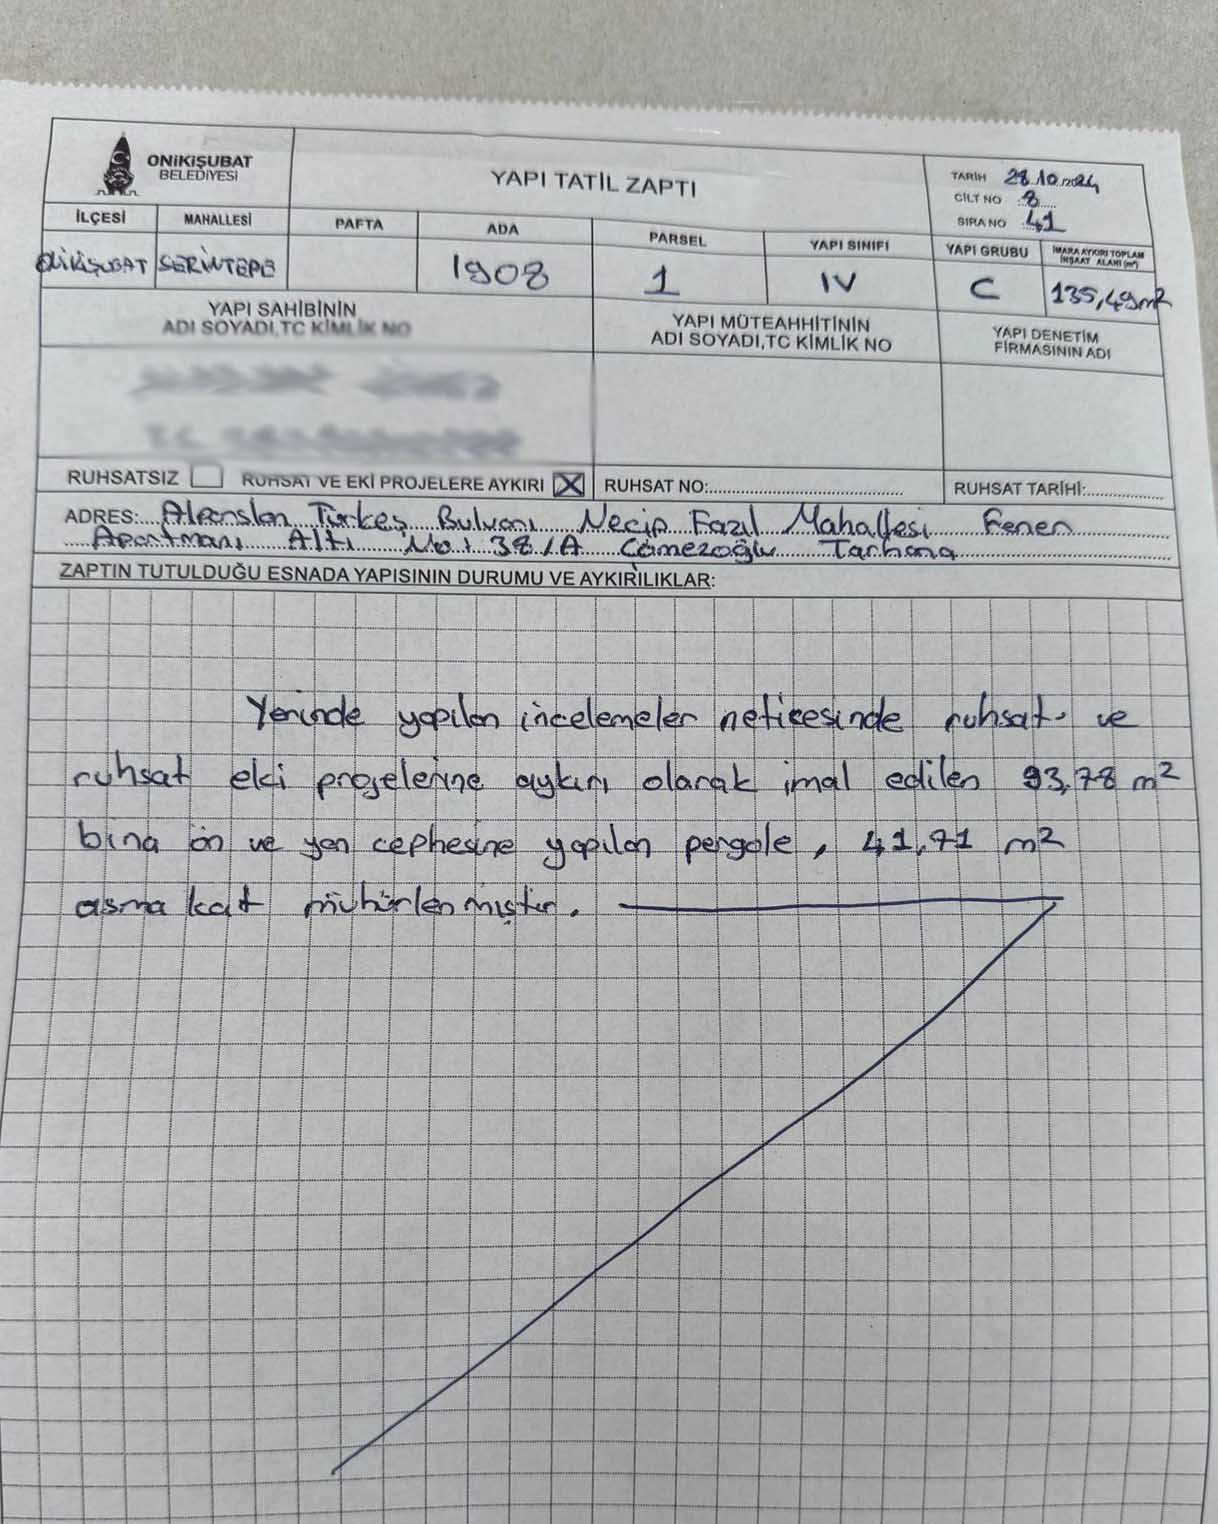 ONİKİŞUBAT
BELEDİYESİ
YAPI TATİL ZAPTI
TARİH 28.10.2024
CİLT NO 8
SIRA NO 41
İLÇESİ MAHALLESİ PAFTA ADA PARSEL YAPI SINIFI YAPI GRUBU İMARA AYKIRI TOPLAM İNŞAAT ALANI (m²)
ONİKİŞUBAT SERİNTEPE 1908 1 IV C 135,49m²
YAPI SAHİBİNİN
ADI SOYADI,TC KİMLİK NO
YAPI MÜTEAHHİTİNİN
ADI SOYADI,TC KİMLİK NO
YAPI DENETİM
FİRMASININ ADI
RUHSATSIZ RUHSAT VE EKİ PROJELERE AYKIRI X RUHSAT NO: RUHSAT TARİHİ:
ADRES: Alparslan Türkeş Bulvarı Necip Fazıl Mahallesi Fener
Apartmanı Altı No: 38/A Cömezoğlu Tarhana
ZAPTIN TUTULDUĞU ESNADA YAPISININ DURUMU VE AYKIRILIKLAR:
Yerinde yapılan incelemeler neticesinde ruhsat ve
ruhsat eki projelerine aykırı olarak imal edilen 93,78 m²
bina ön ve yan cephesine yapılan pergole, 41,71 m²
asma kat mühürlenmiştir.